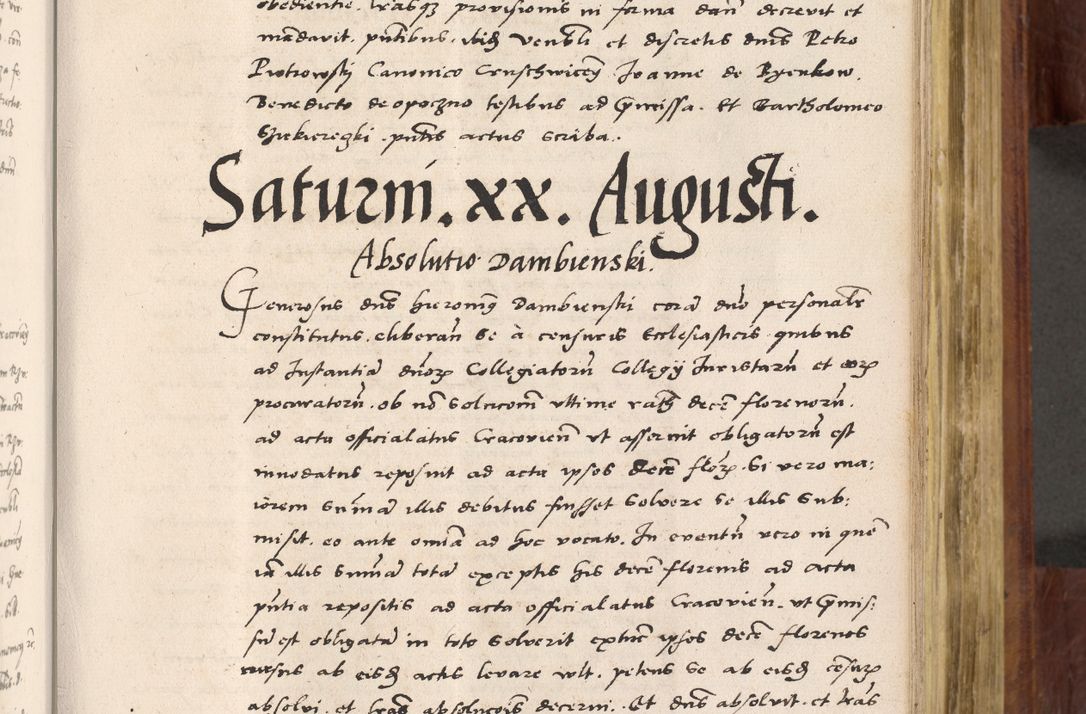 obedientie, l̃rasq̃ provisionis in forma dari decrevit et
mandavit. pñtibus. ibid̃ Venbĩli et discretis dnĩs Petro
Piotrowskj Canonico Cruschwiceñ Joanne de Byenkow.
Benedicto de opoczno testibus ad p̃missa. Et Bartholomeo
pñtis actus scriba.
Saturni. xx. Augusti.
Absolutio Dambienski.
Generosus dnũs Hieronimꝰ Dambienski corã dnõ personalr̃
constitutus, eliberañ se à censuris Ecclesiasticis quibus
ad Instantiã dnõꝝ Collegiatorũ Collegij Juristarũ et eoꝝ
procuratorũ. ob nõ solucionẽ ultime decẽ florenorũ.
ad acta officialatus Cracovien̄ ut asseruit obligatorũ est
innodatus reposuit ad acta ipsos decẽ floꝝ. Si vero ma:
iorem summã illis debitus fuisset solvere se illis sub:
misit. eo ante omĩa ad hoc vocato. In eventũ vero in quẽ
iã illis summã totã exceptis his decẽ florenis ad acta
pñtia repositis ad acta officialatus Cracovien̄. ut p̃mis:
sũ est obligatã in toto solverit extũc ipsos decẽ florenos
rursus ab eisd̃ actis levare vult. petens se ab eisd̃ cẽsuꝝ
absolvi. et l̃ras absolucõis decerni. Et dnũs absolvit. et l̃ras